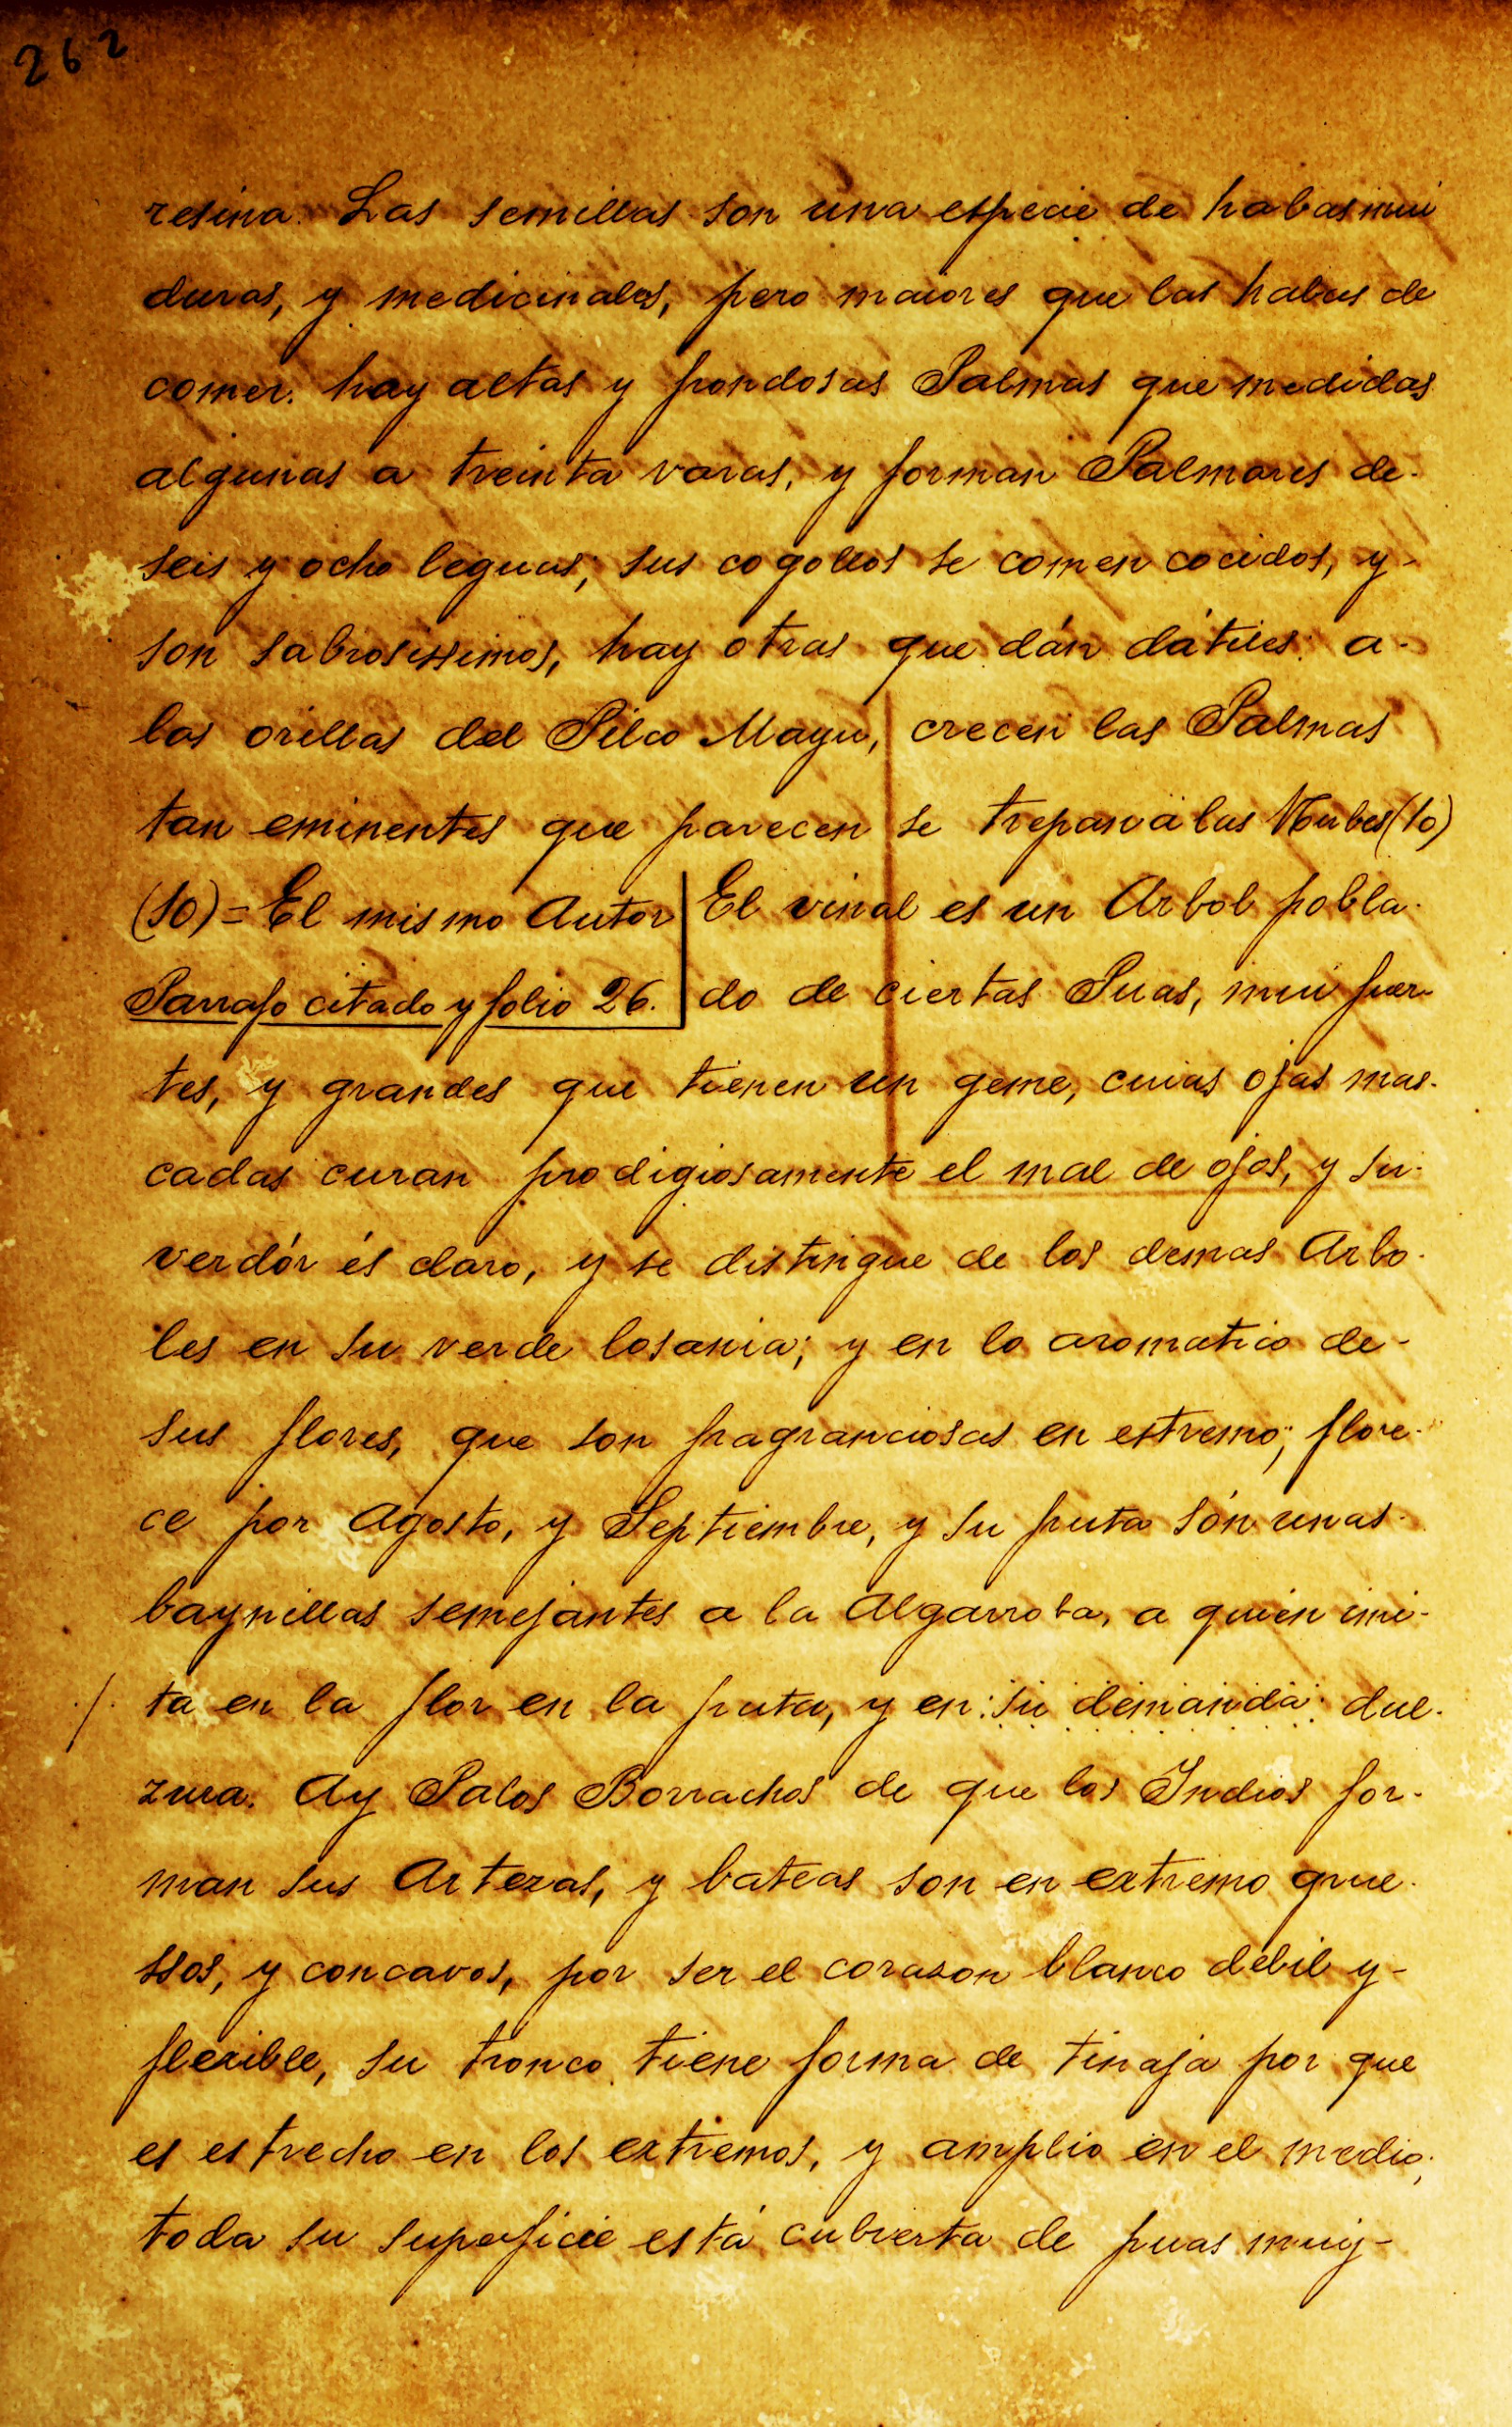 262
resina. Las semillas son una especie de habas mui
duras, y medicinales, pero maiores que las habas de
comer. hay altas y frondosas Palmas que medidas
algunas a treinta varas, y forman Palmares de-
seis y ocho leguas; sus cogollos se comen cocidos, y-
son sabrosissimos, hay otras que dán dátiles: a-
las orillas del Pilco Mayu, crecen las Palmas
tan eminentes que parecen se trepan à las Nubes (10)
(10) = El mismo Autor
Parrafo citado y folio 26.
El vinal es un Arbol pobla-
do de ciertas Puas, mui fuer-
tes, y grandes que tienen un geme, cuias ojas mas-
cadas curan prodigiosamente el mal de ojos, y su-
verdór és claro, y se distingue de los demas Arbo-
les en su verde losania; y en lo aromatico de-
sus flores, que son fragranciosas en estremo; flore-
ce por Agosto, y Septiembre, y su fruta són unas-
baynillas semejantes a la Algarroba, a quien imi-
/. ta en la flor en la fruta, y en: su demanda: dul-
zura. Ay Palos Borrachos de que los Indios for-
man sus Artezas, y bateas son en extremo grue-
ssos, y concavos, por ser el corazon blanco débil y-
flexible, su tronco tiene forma de tinaja por que
es estrecho en los extremos, y amplio en el medio;
toda su superficie está cubierta de puas muy-